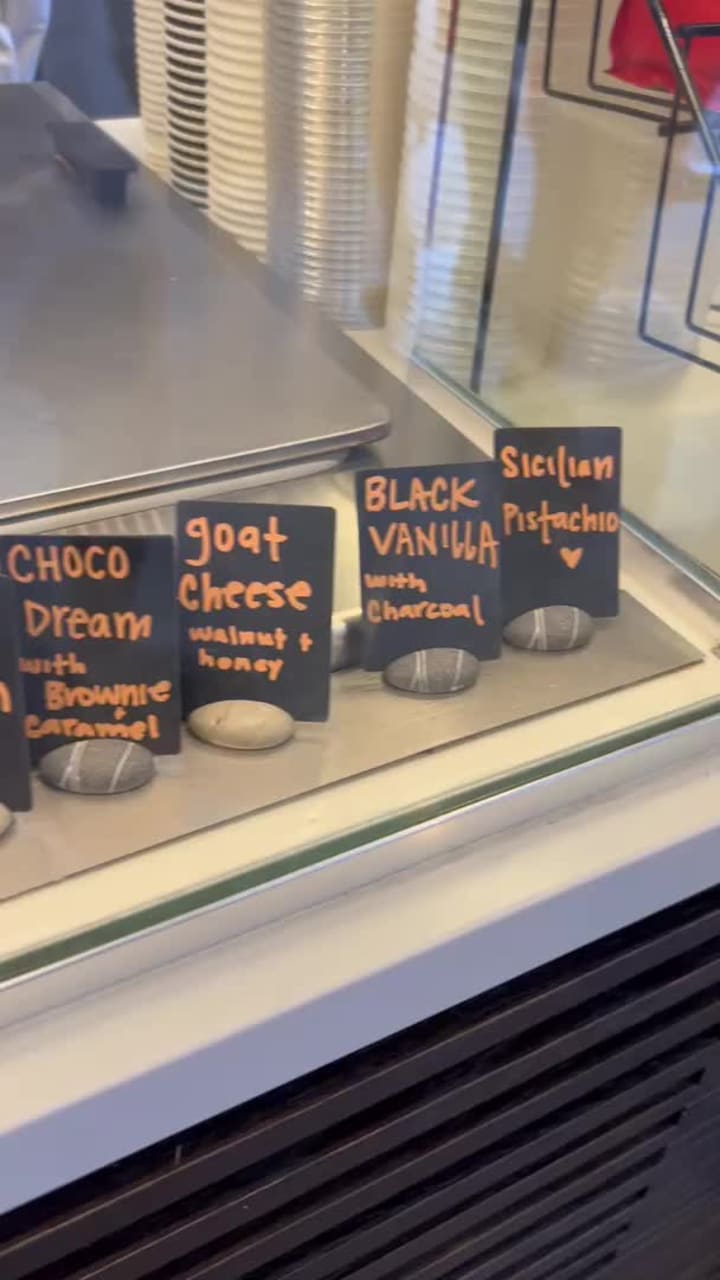 CHOCO
Dream
with
Brownie
+
caramel
goat
Cheese
walnut +
honey
BLACK
VANILLA
with
Charcoal
Sicilian
Pistachio